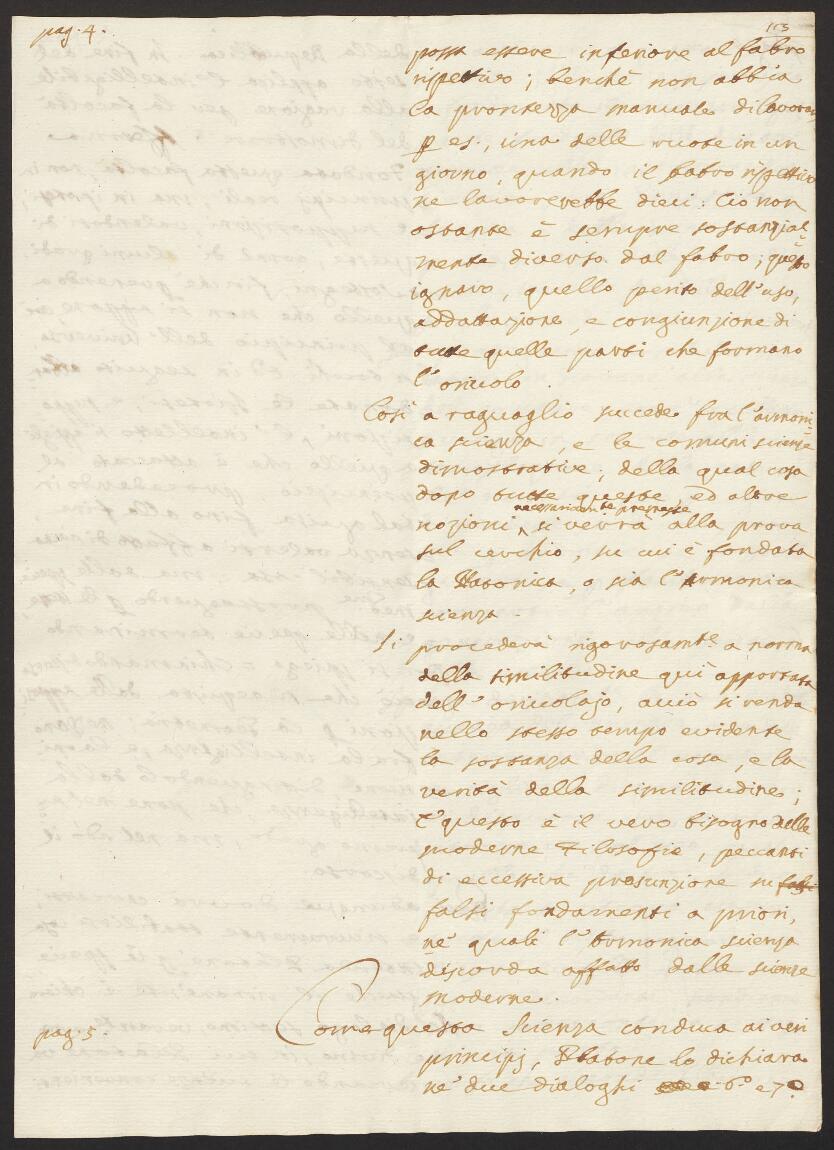 pag. 4.
113
possa essere inferiore al fabro
rispettivo; benchè non abbia
la prontezza manuale di lavorar
p es., una delle ruote in un
giorno, quando il fabro rispettivo
ne lavorerebbe dieci. Ciò non
ostante è sempre sostanzial=
mente diverso dal fabro; questo
ignaro, quello perito dell'uso,
addattazione, e congiunzione di
tutte quelle parti che formano
l'oriuolo.
Così a raguaglio succede fra l'armoni=
ca scienza, e le comuni scienze
dimostrative; della qual cosa
dopo tutte queste, ed altre
necessariam.te premesse
nozioni ^ si verrà alla prova
sul cerchio, su cui è fondata
la Platonica, o sia l'Armonica
scienza.
Si procederà rigorosam.te a norma
della similitudine quì apportata
dell'oriuolajo, acciò si renda
nello stesso tempo evidente
la sostanza della cosa, e la
verità della similitudine;
E questo è il vero bisogno delle
moderne Filosofie, peccanti
di eccessiva presunzione su falsi
falsi fondamenti a priori,
nè quali l'Armonica scienza
discorda affatto dalle scienze
moderne.
pag. 5.
Come questa Scienza conduca ai veri
principj, Platone lo dichiara
nè due dialoghi 6.o e 7.o